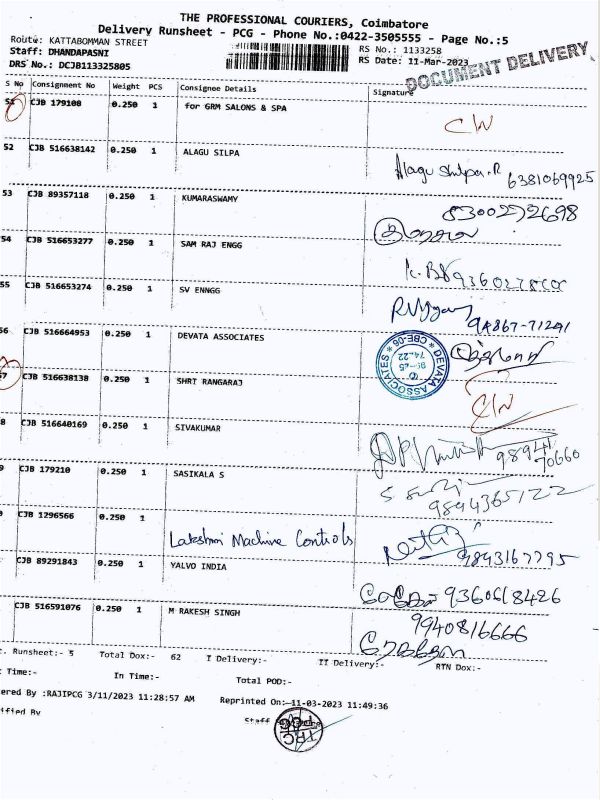 THE PROFESSIONAL COURIERS, Coimbatore
Delivery Runsheet - PCG - Phone No.:0422-3505555 - Page No.:5
Route: KATTABOMMAN STREET
RS No.: 1133258
Staff: DHANDAPASNI
RS Date: 11-Mar-2023
DRS No.: DCJB113325805
DOCUMENT DELIVERY
S No Consignment No Weight PCS Consignee Details Signature
51 CJB 179108 0.250 1 for GRM SALONS & SPA
CW
52 CJB 516638142 0.250 1 ALAGU SILPA
Alagu Shilpa.R 6381069925
53 CJB 89357118 0.250 1 KUMARASWAMY
8300272698
54 CJB 516653277 0.250 1 SAM RAJ ENGG
55 CJB 516653274 0.250 1 SV ENNGG
94867-71241
56 CJB 516664953 0.250 1 DEVATA ASSOCIATES
DEVATA ASSOCIATES
CBE-06
57 CJB 516638138 0.250 1 SHRI RANGARAJ
CW
8 CJB 516640169 0.250 1 SIVAKUMAR
98941
70660
9 CJB 179210 0.250 1 SASIKALA S
9894365122
CJB 1296566 0.250 1 Lakshmi Machine Controls
9843167795
CJB 89291843 0.250 1 YALVO INDIA
9360618426
CJB 516591076 0.250 1 M RAKESH SINGH
9940816666
. Runsheet:- 5 Total Dox:- 62 I Delivery:- II Delivery:- RTN Dox:-
Time:- In Time:- Total POD:-
ered By :RAJIPCG 3/11/2023 11:28:57 AM Reprinted On:-11-03-2023 11:49:36
ified By
Staff